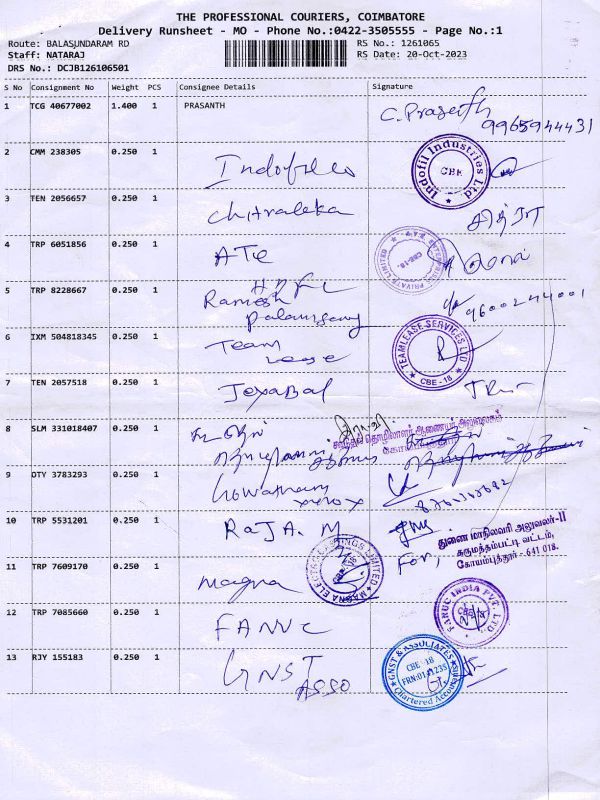 THE PROFESSIONAL COURIERS, COIMBATORE
Delivery Runsheet - MO - Phone No.:0422-3505555 - Page No.:1
Route: BALASUNDARAM RD
RS No.: 1261065
Staff: NATARAJ
RS Date: 20-Oct-2023
DRS No.: DCJB126106501
S No Consignment No Weight PCS Consignee Details Signature
1 TCG 40677002 1.400 1 PRASANTH C. Prasanth
9965944431
2 CMM 238305 0.250 1 Indofil Indofil Industries Ltd CBE
3 TEN 2056657 0.250 1 Chitraleka சித்ரா
4 TRP 6051856 0.250 1 ATE PRIVATE LIMITED CBE-18
5 TRP 8228667 0.250 1 HDFC
Ramesh 9600244001
6 IXM 504818345 0.250 1 Team
lease TEAMLEASE SERVICES LTD CBE - 18
7 TEN 2057518 0.250 1 Jeyabal
8 SLM 331018407 0.250 1
9 OTY 3783293 0.250 1 Gowtham
xerox
10 TRP 5531201 0.250 1 RAJA. M For,
துணை மாநிலவரி அலுவலர்-II
கருமத்தம்பட்டி வட்டம்,
கோயம்புத்தூர் - 641 018.
11 TRP 7609170 0.250 1 Magna
12 TRP 7085660 0.250 1 FANUC FANUC INDIA PVT. LTD.
13 RJY 155183 0.250 1 GNST
ASSO GNST & ASSOCIATES CBE - 18 Chartered Accountants